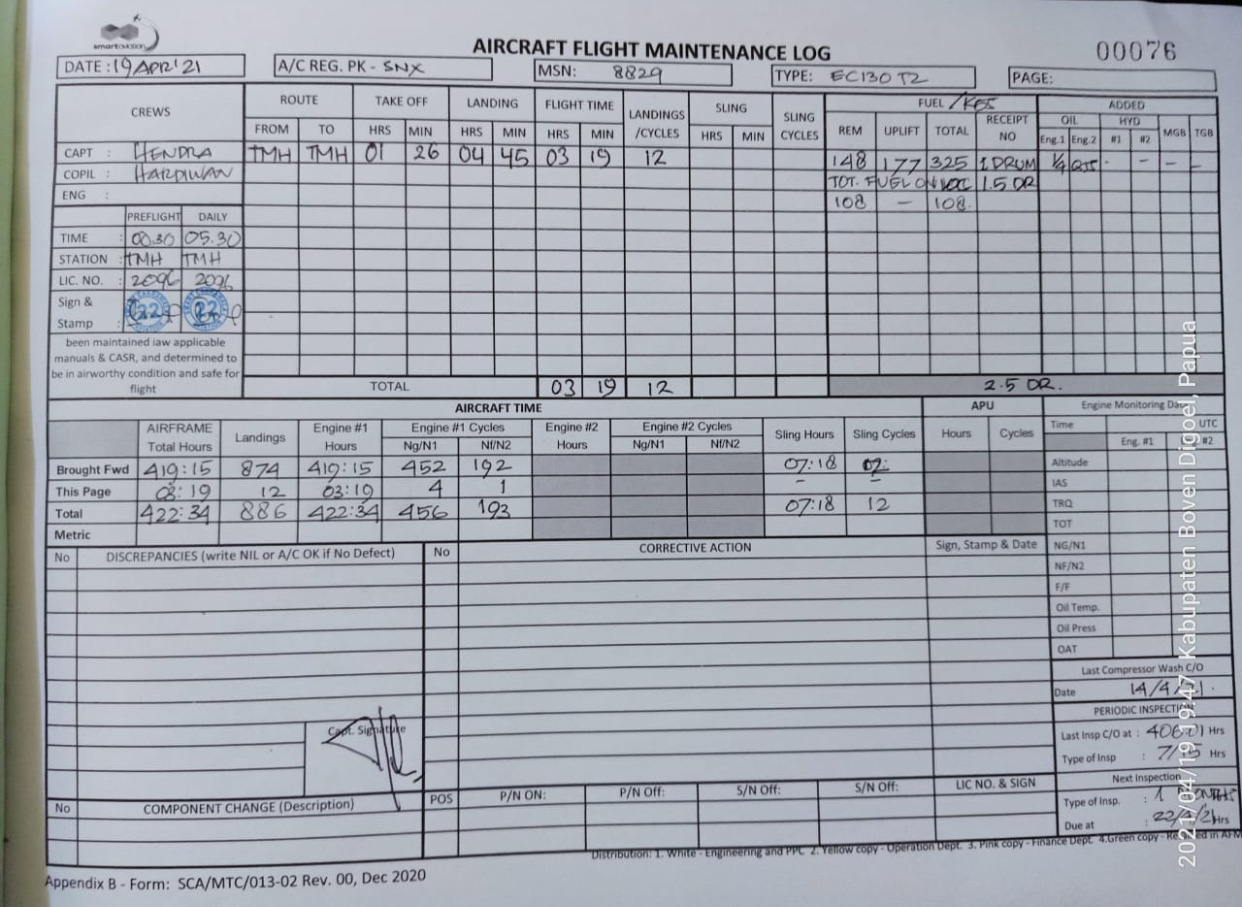 smartaviation
AIRCRAFT FLIGHT MAINTENANCE LOG
00076
DATE : 19 APR '21 A/C REG. PK - SNX MSN: 8829 TYPE: EC130 T2 PAGE:
CREWS ROUTE TAKE OFF LANDING FLIGHT TIME LANDINGS /CYCLES SLING SLING CYCLES FUEL / KGS ADDED
OIL HYD MGB TGB
FROM TO HRS MIN HRS MIN HRS MIN HRS MIN REM UPLIFT TOTAL RECEIPT NO Eng.1 Eng.2 #1 #2
CAPT : HENDRA TMH TMH 01 26 04 45 03 19 12 148 177 325 1 DRUM 1/4 QTS - - - -
COPIL : HARDIWAN TOT. FUEL ON LOC 1.5 DR
ENG : 108 - 108.
PREFLIGHT DAILY
TIME : 00.30 05.30
STATION : TMH TMH
LIC. NO. : 2096 2096
Sign & Stamp : 22 22
been maintained iaw applicable
manuals & CASR, and determined to
be in airworthy condition and safe for
flight
TOTAL 03 19 12 2.5 DR.
AIRCRAFT TIME APU Engine Monitoring Data
AIRFRAME Total Hours Landings Engine #1 Hours Engine #1 Cycles Engine #2 Hours Engine #2 Cycles Sling Hours Sling Cycles Hours Cycles Time UTC
Ng/N1 Nf/N2 Ng/N1 Nf/N2 Eng. #1 #2
Brought Fwd 419:15 874 419:15 452 192 07:18 Altitude
This Page 03:19 12 03:19 4 1 - - IAS
Total 422:34 886 422:34 456 193 07:18 12 TRQ
Metric TOT
No DISCREPANCIES (write NIL or A/C OK if No Defect) No CORRECTIVE ACTION Sign, Stamp & Date NG/N1
NF/N2
F/F
Oil Temp.
Oil Press
OAT
Last Compressor Wash C/O
Date 14/4/21.
PERIODIC INSPECTION
Capt. Signature
Last Insp C/O at : 406:01 Hrs
Type of Insp : 7/15 Hrs
Next Inspection
No COMPONENT CHANGE (Description) POS P/N ON: P/N Off: S/N Off: S/N Off: LIC NO. & SIGN
Type of Insp. : 1 MONTHS
Due at : 22/4/21 Hrs
Distribution: 1. White - Engineering and PPC 2. Yellow copy - Operation Dept. 3. Pink copy - Finance Dept. 4.Green copy - Retained in AFM
Appendix B - Form: SCA/MTC/013-02 Rev. 00, Dec 2020
2021/04/19 19:47 Kabupaten Boven Digoel, Papua